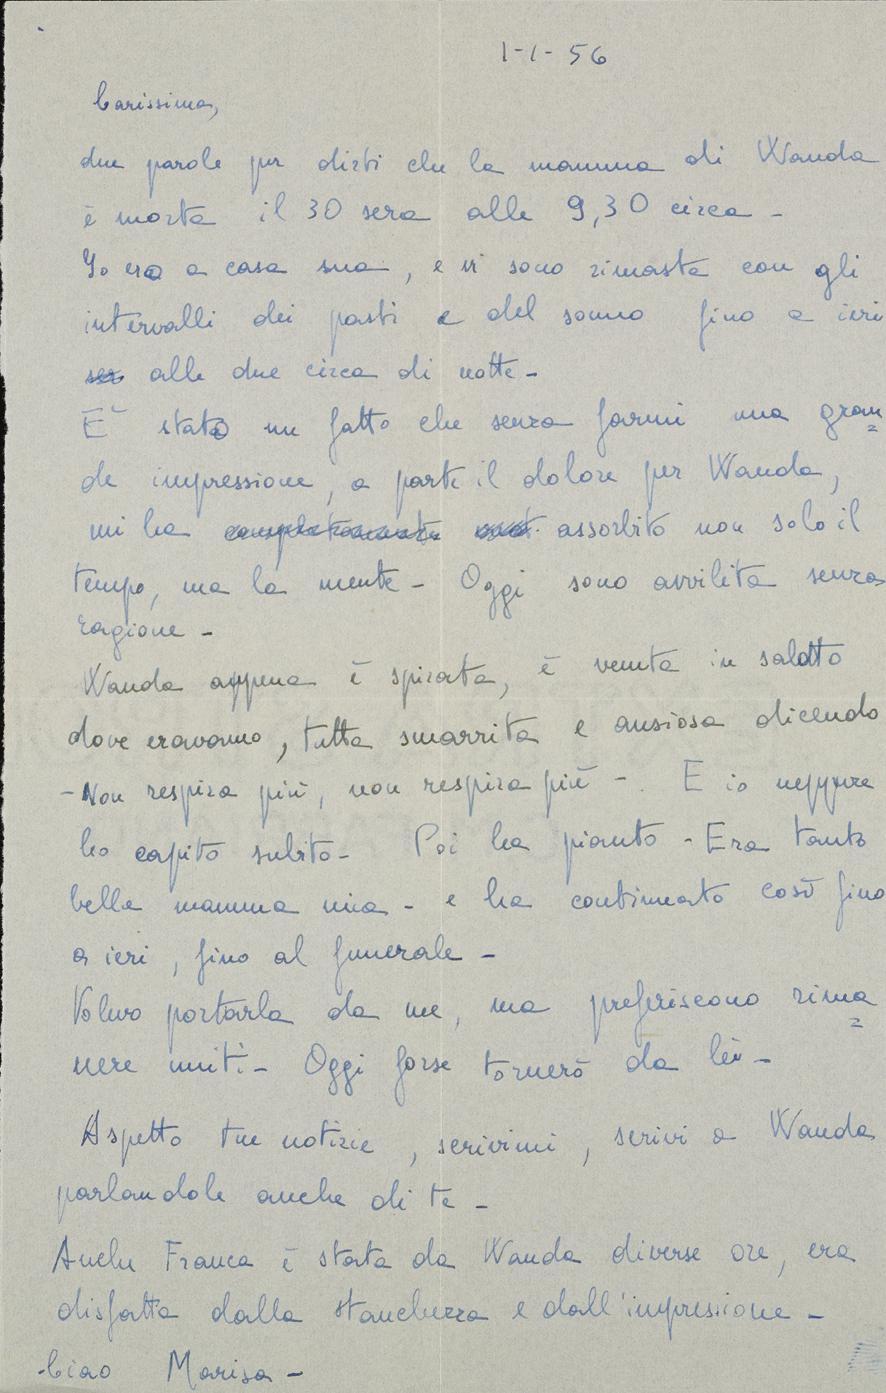 1-1-56
Carissima,
due parole per dirti che la mamma di Wanda
è morta il 30 sera alle 9,30 circa -
Io ero a casa sua, e vi sono rimasta con gli
intervalli dei pasti e del sonno fino a ieri
alle due circa di notte -
È stato un fatto che senza farmi una gran=
de impressione, a parte il dolore per Wanda,
mi ha completamente assorbito non solo il
tempo, ma la mente - Oggi sono avvilita senza
ragione -
Wanda appena è spirata, è venuta in salotto
dove eravamo, tutta smarrita e ansiosa dicendo
- Non respira più, non respira più -. E io neppure
ho capito subito - Poi ha pianto - Era tanto
bella mamma mia - e ha continuato così fino
a ieri, fino al funerale -
Volevo portarla da me, ma preferiscono rima=
nere uniti - Oggi forse tornerò da lei -
Aspetto tue notizie, scrivimi, scrivi a Wanda
parlandole anche di te -
Anche Franca è stata da Wanda diverse ore, era
disfatta dalla stanchezza e dall'impressione -
Ciao Marisa -